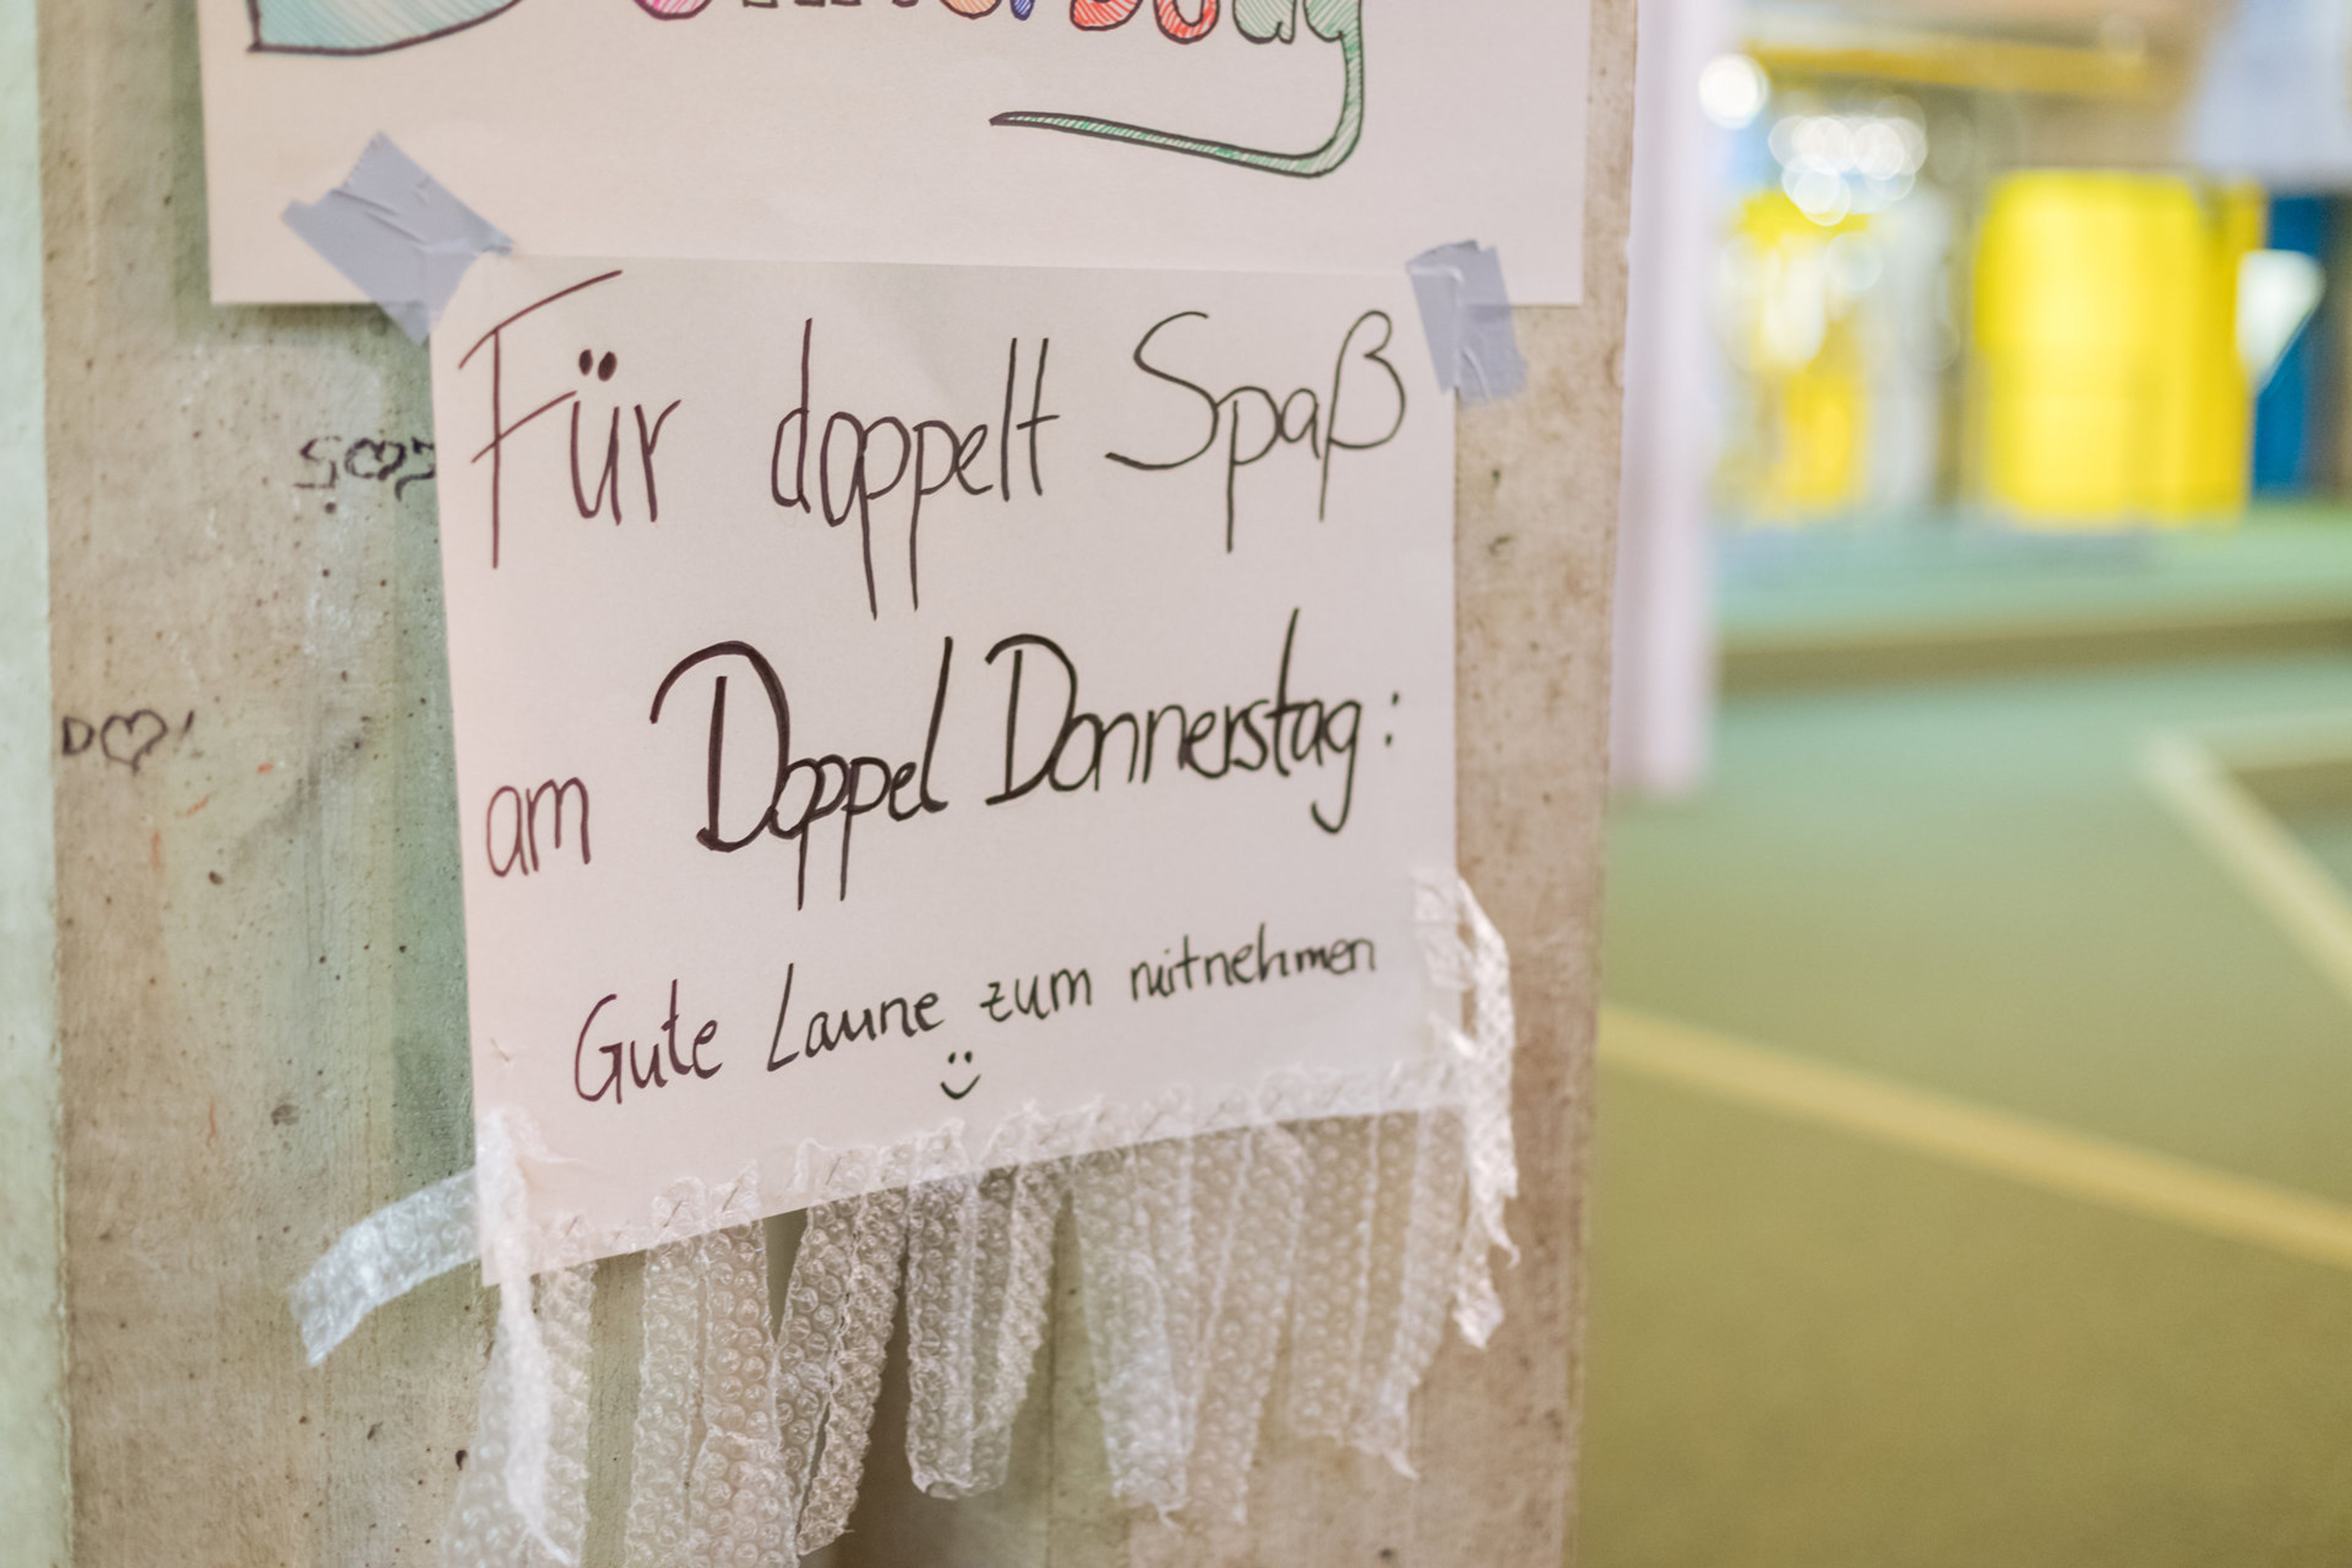 Für doppelt Spaß
am Doppel Donnerstag:
Gute Laune zum mitnehmen